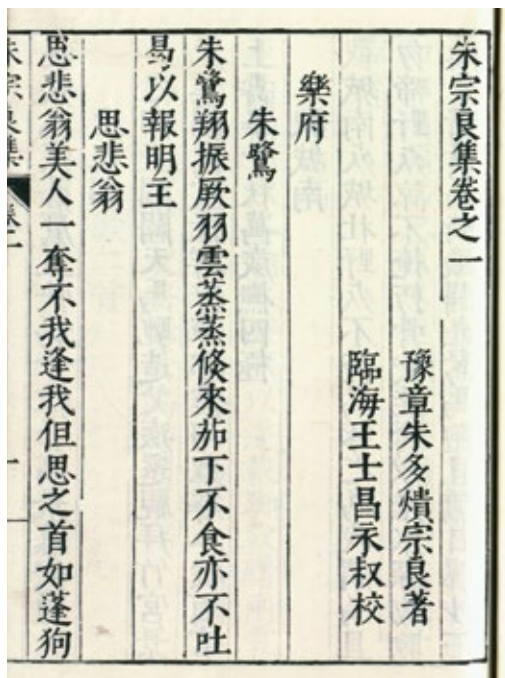 朱宗良集卷之一
豫章朱多熿宗良著
臨海王士昌永叔校
樂府
朱鷺
朱鷺翔振厥羽雲蒸蒸倐來茄下不食亦不吐
曷以報明主
思悲翁
思悲翁美人一奪不我逢我但思之首如蓬狗
朱宗良集